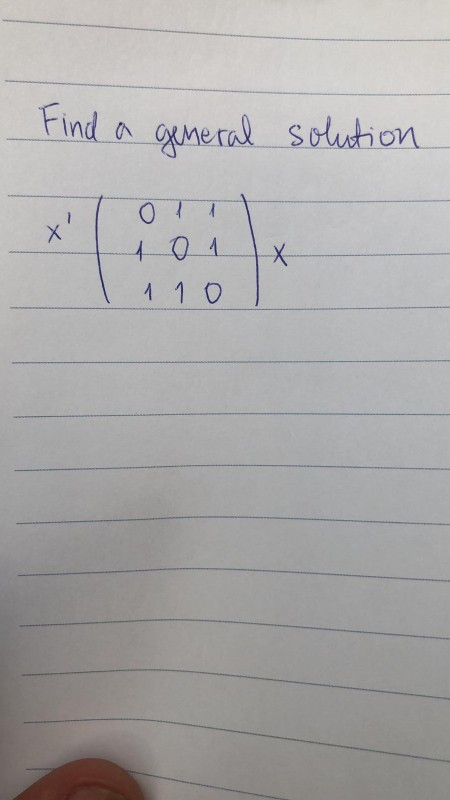 Find a general solution
x' ( 0 1 1
1 0 1
1 1 0 ) x